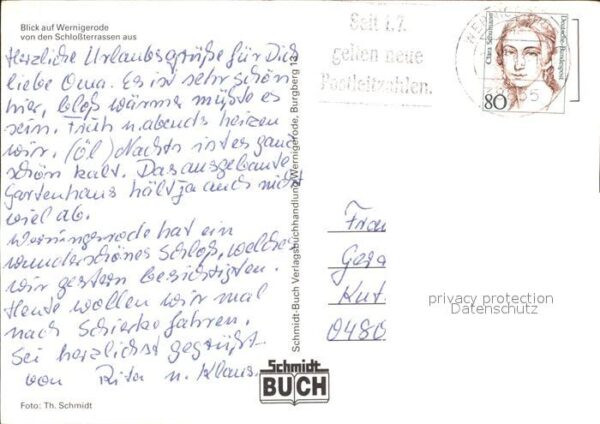 Blick auf Wernigerode
von den Schloßterrassen aus
Herzliche Urlaubsgrüße für Dich
liebe Oma. Es ist sehr schön
hier, bloß wärmer müßte es
sein. Früh u. abends heizen
wir. (Öl) Nachts ist es ganz
schön kalt. Das ausgebaute
Gartenhaus hält ja auch nicht
viel ab.
Wernigerode hat ein
wunderschönes Schloß, welches
wir gestern besichtigten.
Heute wollen wir mal
nach Schierke fahren.
Sei herzlichst gegrüßt
von Rita u. Klaus.
Foto: Th. Schmidt
Schmidt-Buch Verlagsbuchhandlung Wernigerode, Burgberg
Schmidt
BUCH
Seit 1.7.
gelten neue
Postleitzahlen.
Clara Schumann
Deutsche Bundespost
80
Frau
Gera
Kut
0480
privacy protection
Datenschutz